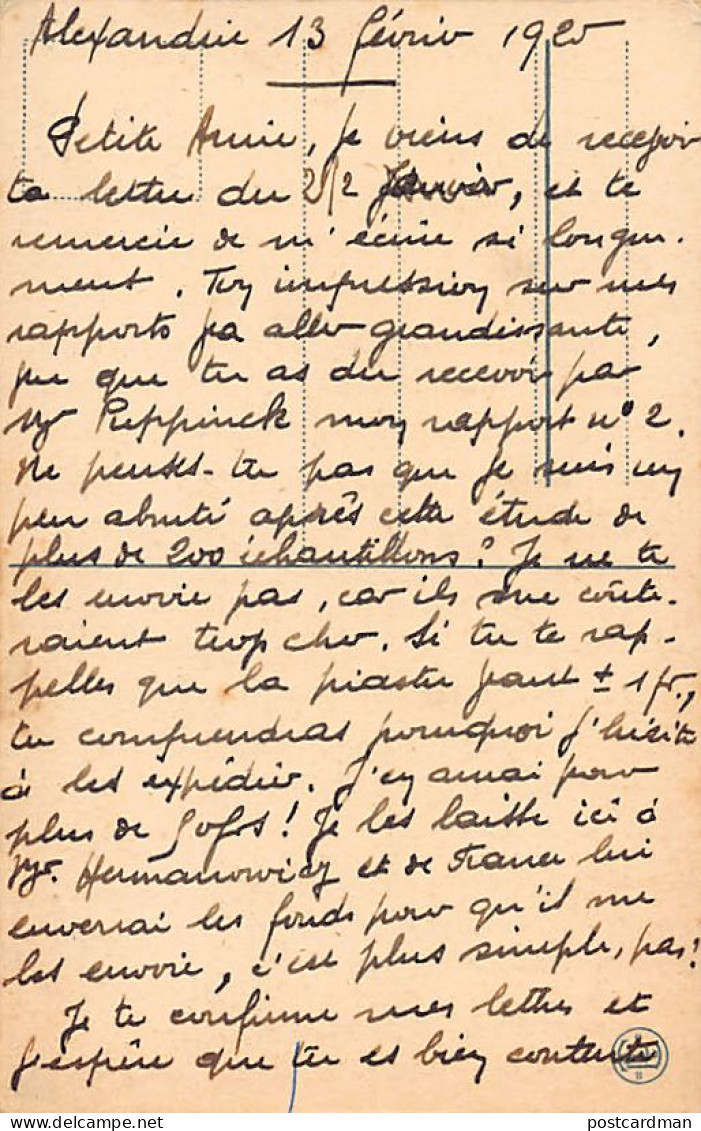 Alexandrie 13 février 1920
Petite Amie, je viens de recevoir
ta lettre du 2/2 janvier, et te
remercie de m'écrire si longue-
ment. Ton impression sur mes
rapports va aller grandissante,
vu que tu as du recevoir par
Mr Puppinck mon rapport n° 2.
Ne penses-tu pas que je suis un
peu abruti après cette étude de
plus de 200 échantillons? Je ne te
les envoie pas, car ils me coûte-
raient trop cher. Si tu te rap-
pelles que la piastre vaut ± 1 fr.,
tu comprendras pourquoi j'hésite
à les expédier. J'en aurai pour
plus de 50 frs! Je les laisse ici à
Mr. Hermanowicz et de France lui
enverrai les fonds pour qu'il me
les envoie, c'est plus simple, pas!
Je te confirme mes lettres et
j'espère que tu es bien contente
postcardman